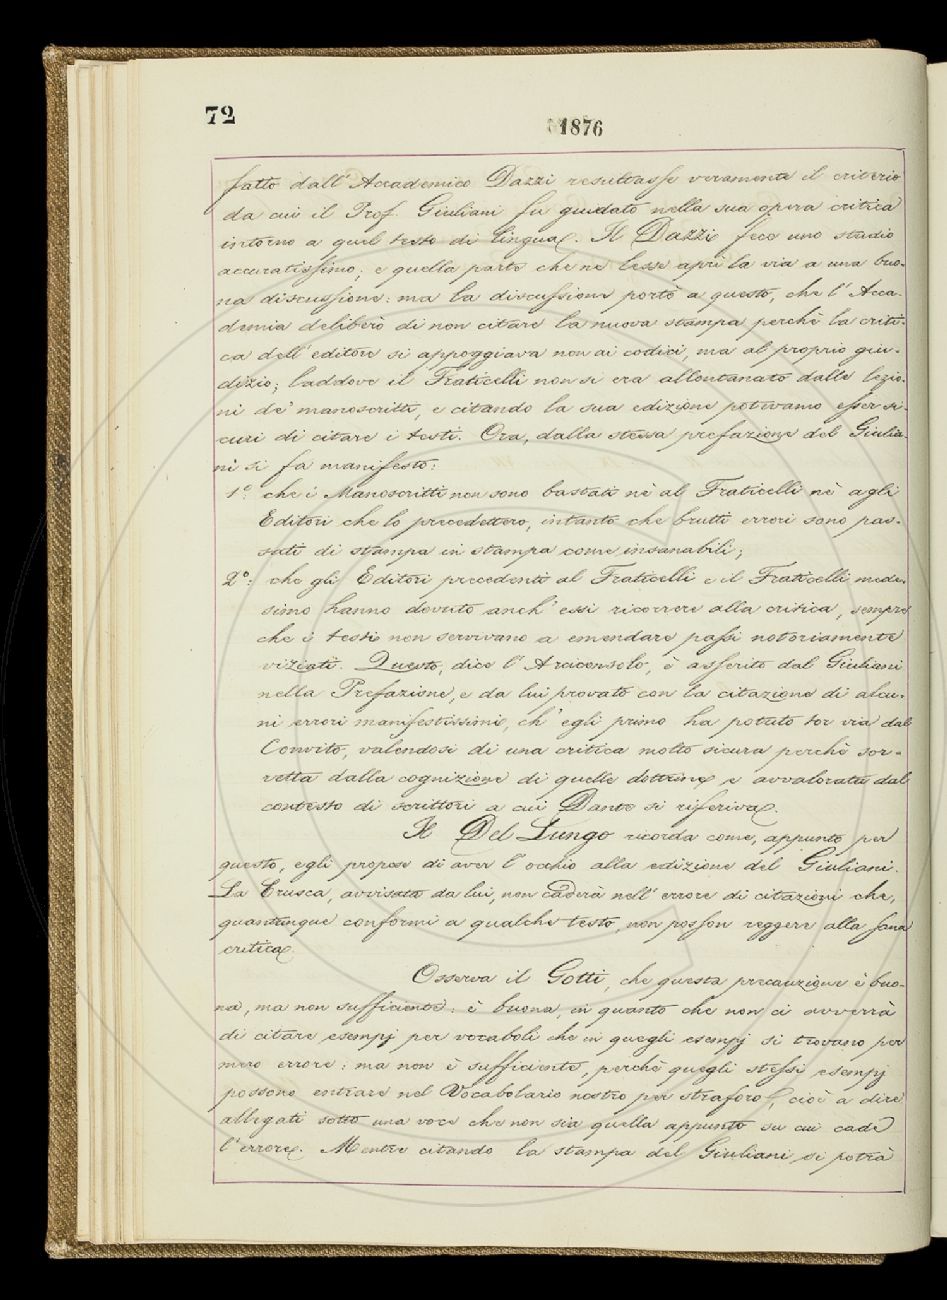 72
1876
fatto dall' Accademico Dazzi resultasse veramente il criterio
da cui il Prof. Giuliani fu guidato nella sua opera critica
intorno a quel testo di lingua. Il Dazzi fece uno studio
accuratissimo; e quella parte che ne lesse aprì la via a una buo-
na discussione: ma la discussione portò a questo, che l' Acca-
demia deliberò di non citare la nuova stampa perchè la criti-
ca dell' editore si appoggiava non ai codici, ma al proprio giu-
dizio; laddove il Fraticelli non si era allontanato dalle lezio-
ni de' manoscritti, e citando la sua edizione potevamo esser si-
curi di citare i testi. Ora, dalla stessa prefazione del Giulia-
ni si fa manifesto:
1.° che i Manoscritti non sono bastati nè al Fraticelli nè agli
Editori che lo precedettero, intanto che brutti errori sono pas-
sati di stampa in stampa come insanabili;
2°: che gli Editori precedenti al Fraticelli e il Fraticelli mede-
simo hanno dovuto anch' essi ricorrere alla critica, sempre
che i testi non servivano a emendare passi notoriamente
viziati. Questo, dice l' Arciconsolo, è asserito dal Giuliani
nella Prefazione, e da lui provato con la citazione di alcu-
ni errori manifestissimi, ch' egli primo ha potuto tor via dal
Convito, valendosi di una critica molto sicura perchè sor-
retta dalla cognizione di quelle dottrine e avvalorata dal
contesto di scrittori a cui Dante si riferiva.
Il Del Lungo ricorda come, appunto per
questo, egli propose di aver l' occhio alla edizione del Giuliani.
La Crusca, avvisata da lui, non caderà nell' errore di citazioni che,
quantunque conformi a qualche testo, non posson reggere alla sana
critica.
Osserva il Gotti, che questa precauzione è buo-
na, ma non sufficiente: è buona, in quanto che non ci avverrà
di citare esempj per vocaboli che in quegli esempj si trovano per
mero errore: ma non è sufficiente, perchè quegli stessi esempj
possono entrare nel Vocabolario nostro per straforo, cioè a dire
allegati sotto una voce che non sia quella appunto su cui cade
l' errore. Mentre citando la stampa del Giuliani si potrà